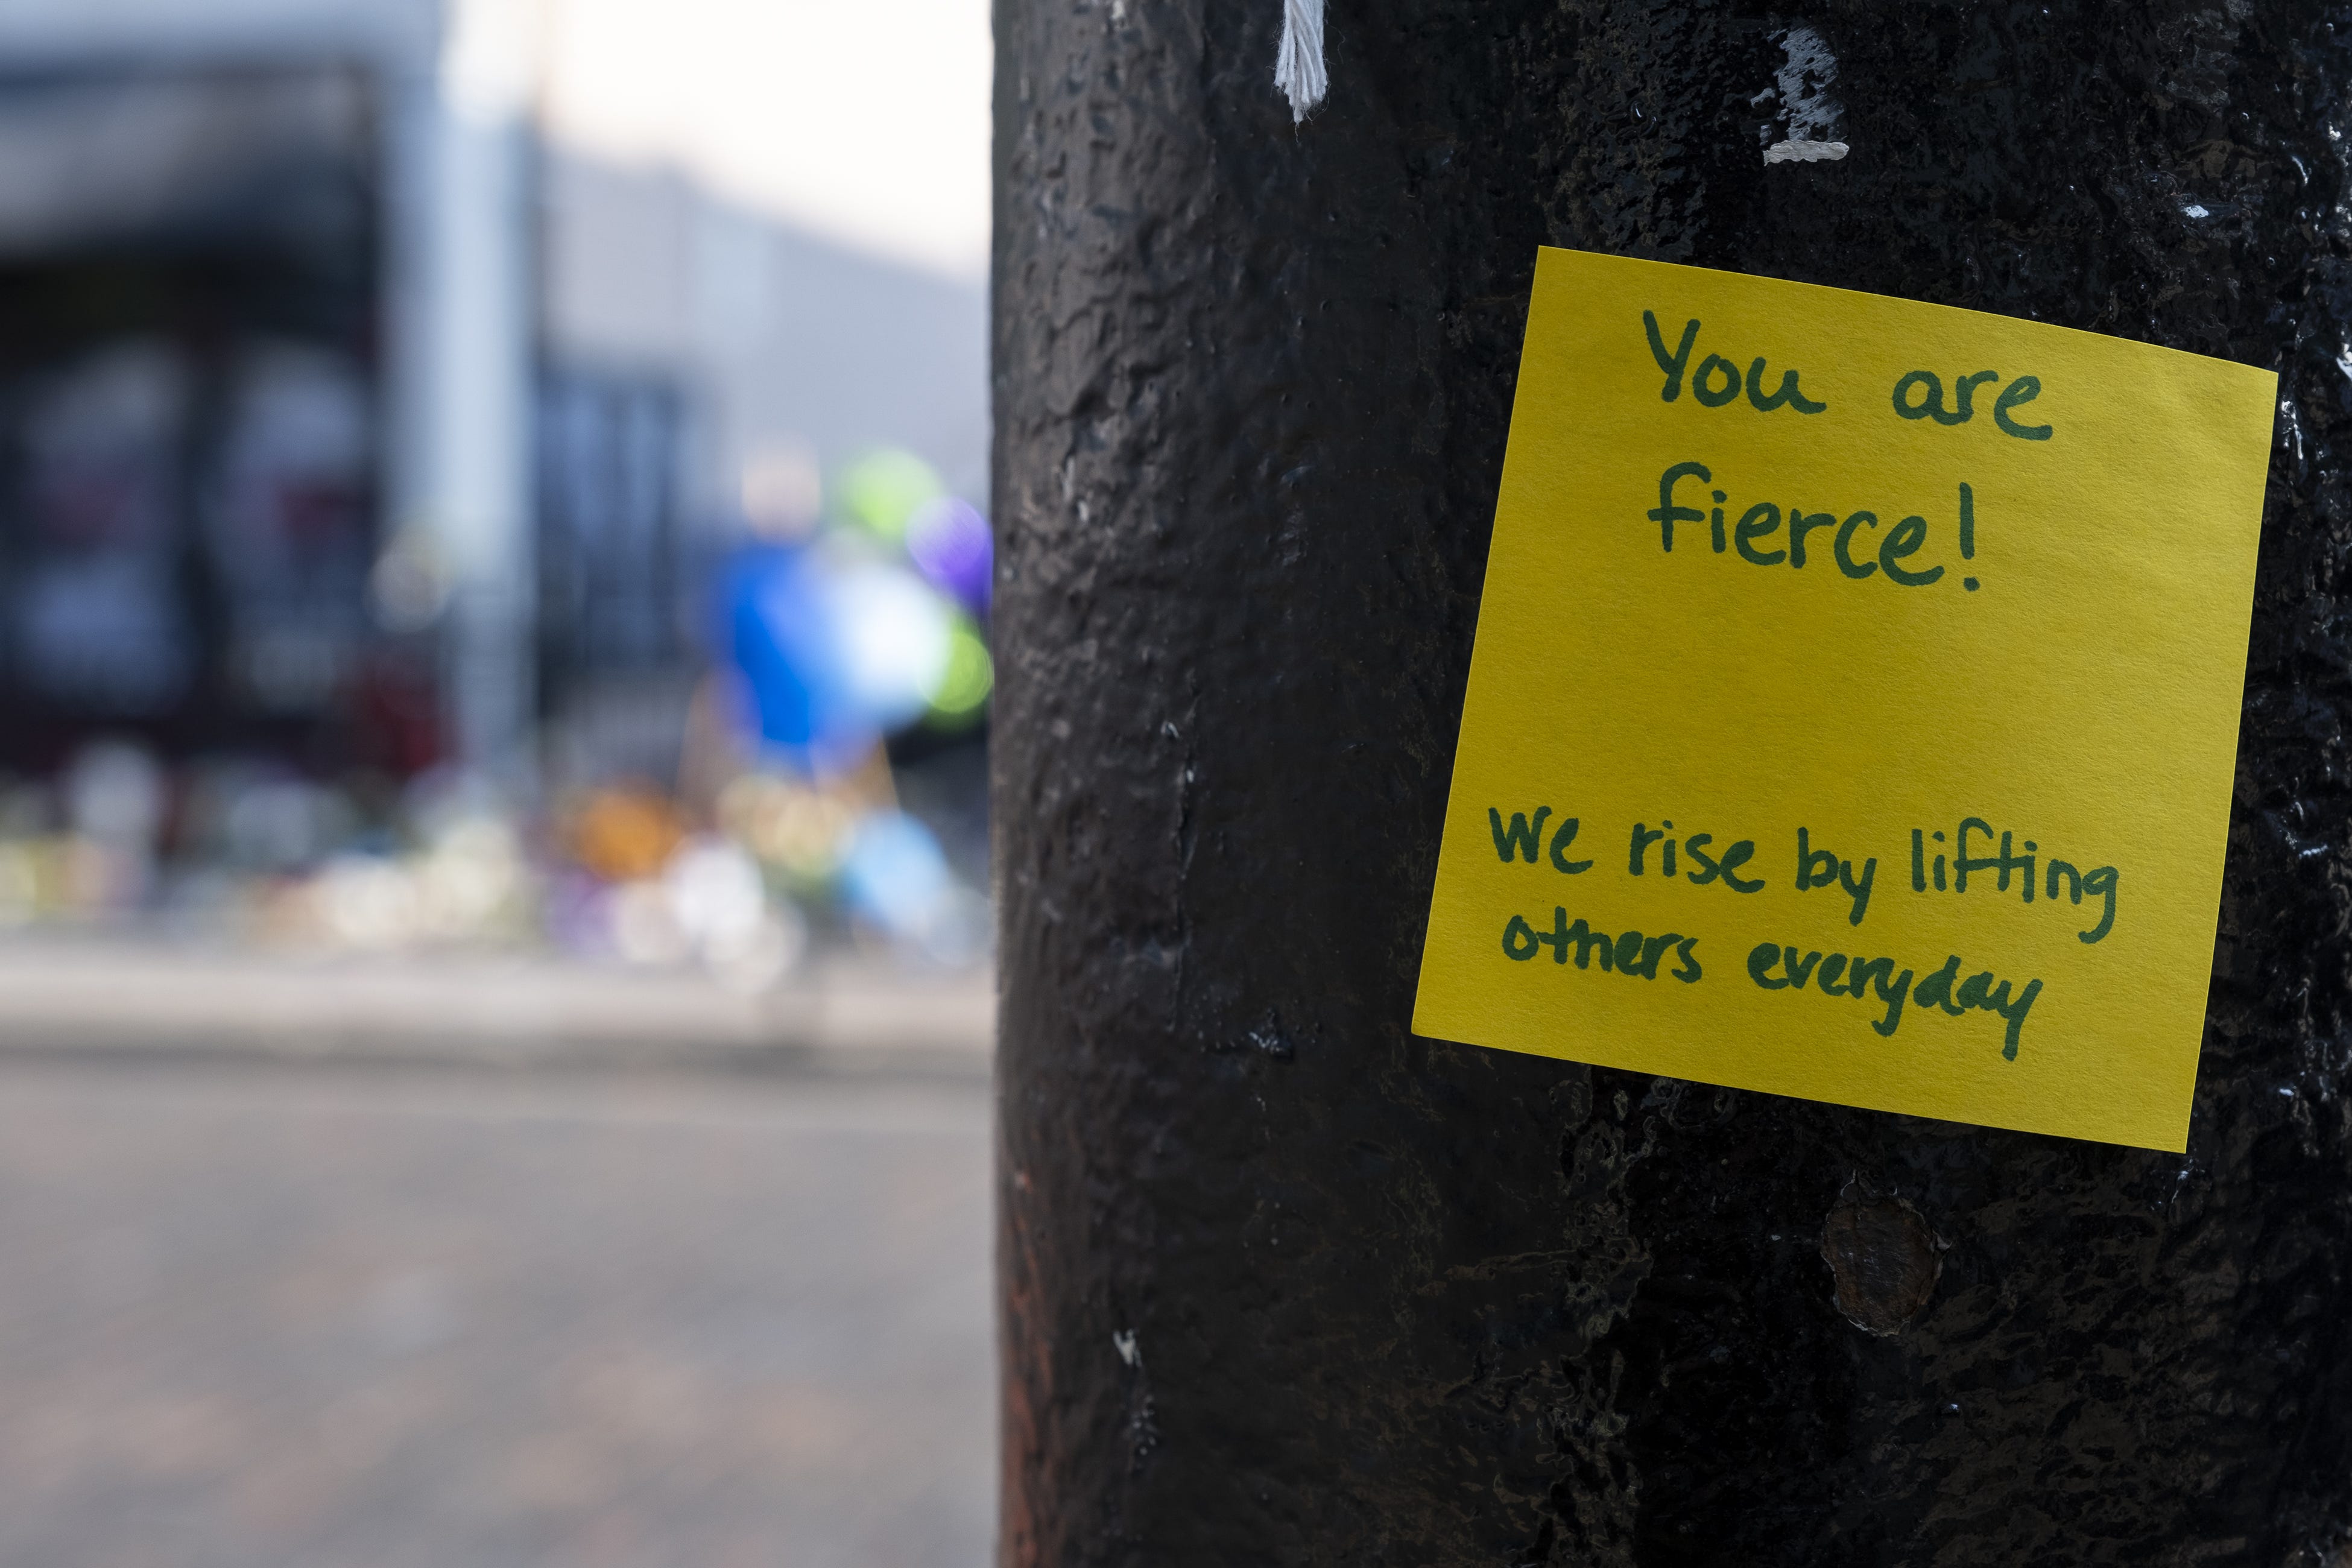 You are
fierce!
We rise by lifting
others everyday